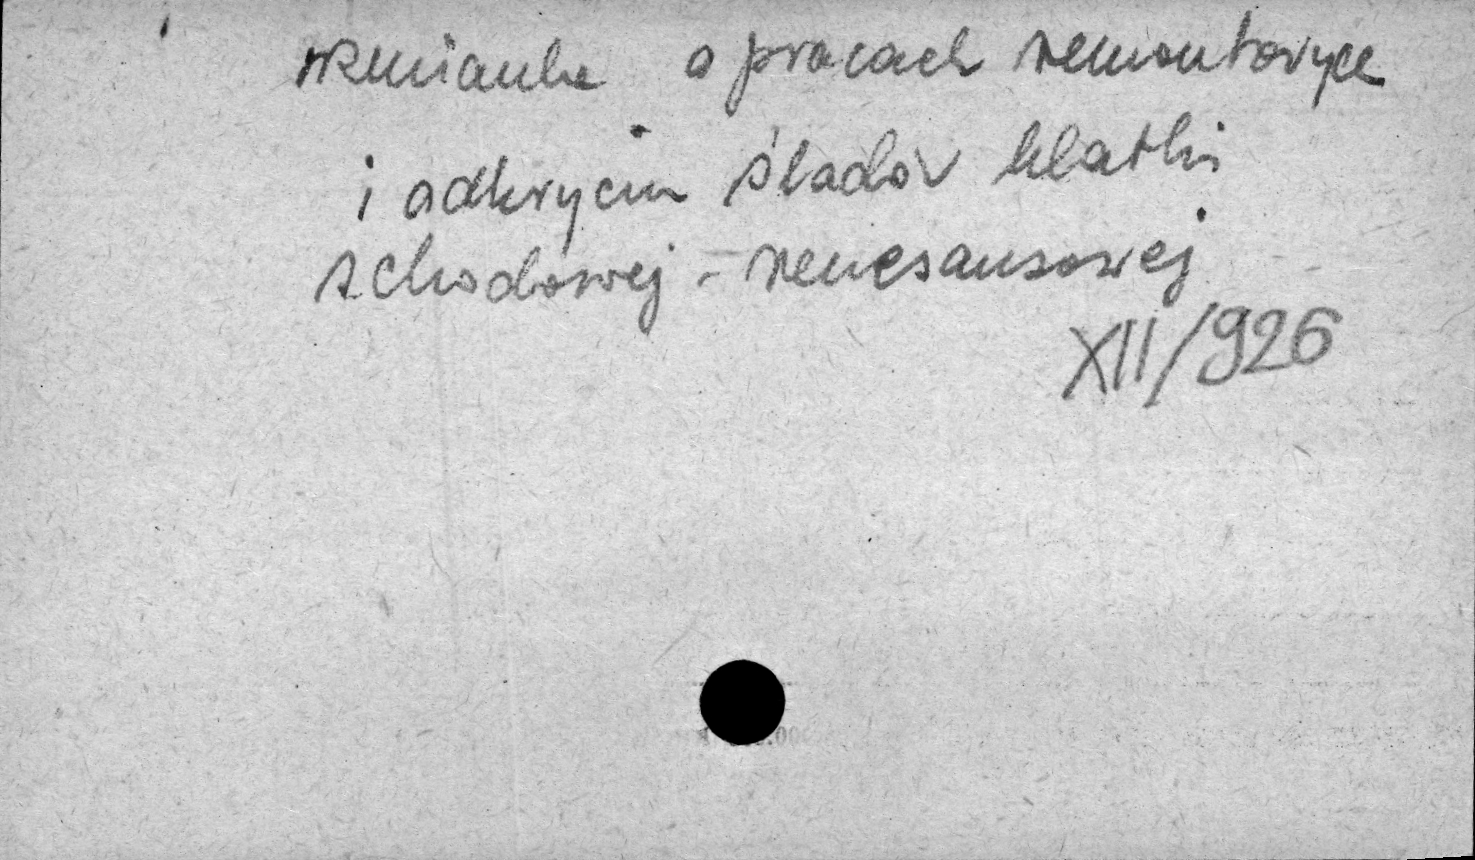 wzmianka o pracach remontowych
i odkryciu śladów klatki
schodowej - renesansowej
XII/926